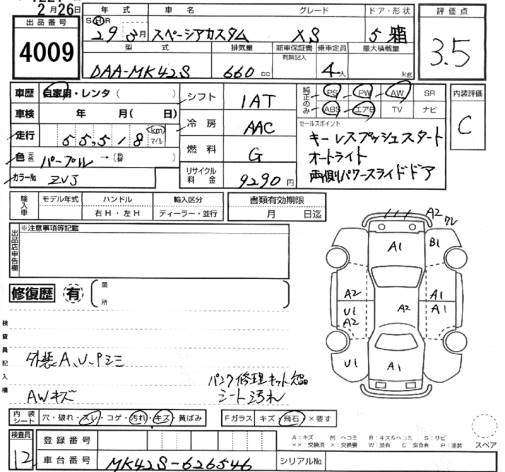 2月26日
出品番号
4009
年式 車名 グレード ドア・形状
S H R
29 3月 スペーシアカスタム XS 5 箱
型式 排気量 新車保証書 乗車定員 最大積載量
有無記入
DAA-MK42S 660 cc 4人 kg
評価点
3.5
車歴 自家用・レンタ( )
車検 年 月( 日)
走行 55,518 km マイル
色 パープル → (替 )
カラーNo ZVJ
シフト 1AT
冷房 AAC
燃料 G
リサイクル料金 9290円
純正のみ
PS PW AW SR
ABS エアB TV ナビ
セールスポイント
キーレスプッシュスタート
オートライト
両側パワースライドドア
内装評価
C
輸入車
モデル年式 ハンドル 輸入区分
右H・左H ディーラー・並行
書類有効期限
月 日迄
出品店申告欄
※注意事項等記載
修復歴 有
箇所
検査員記入欄
外装A、U、Pシミ
AWキズ
パンク修理キット欠品
シート汚れ
A2
ワレ
A1
B1
A2
A2
A1
A1
U1
A2
U1
A1
U1
スペア
内装シート
穴・破れ・スレ・コゲ・汚れ・キズ・黄ばみ
Fガラス キズ・飛石・×要す
A:キズ M:ヘコミ B:キズ&ヘコミ S:サビ
検査員
12
登録番号
車台番号 MK42S-626546
シリアルNo